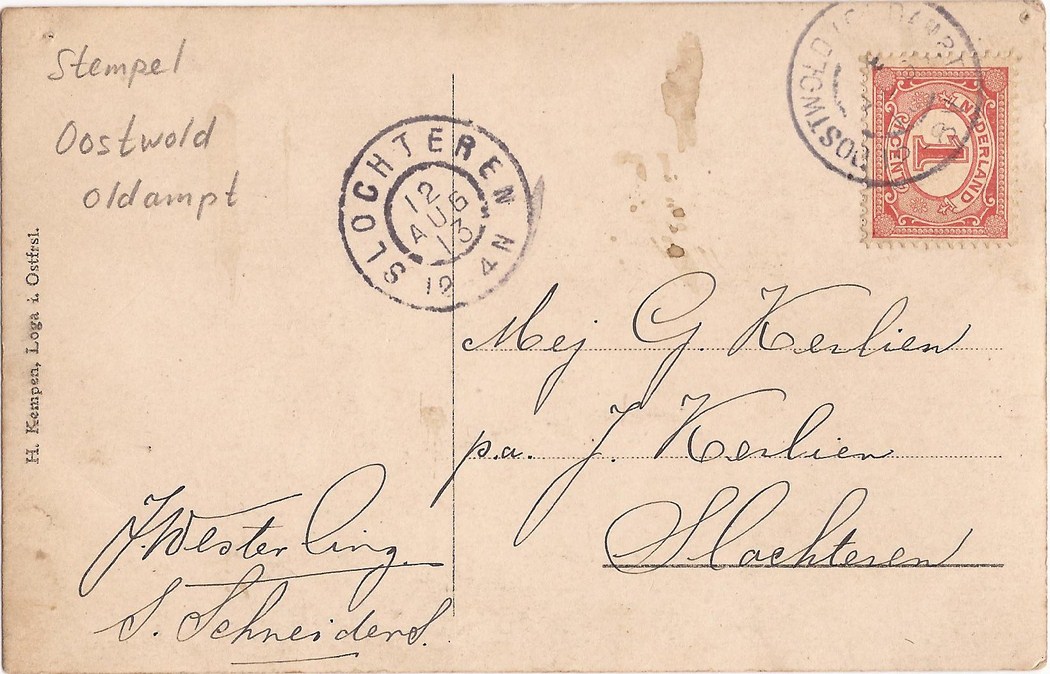 Stempel
Oostwold
Oldampt
H. Kempen, Loga i. Ostfrsl.
SLOCHTEREN
12
AUG
13
12 4N
OOSTWOLD
NEDERLAND
1
CENT
Mej G. Kerlien
p.a. J. Kerlien
Slochteren
J. Westerling
S. Schneiders.